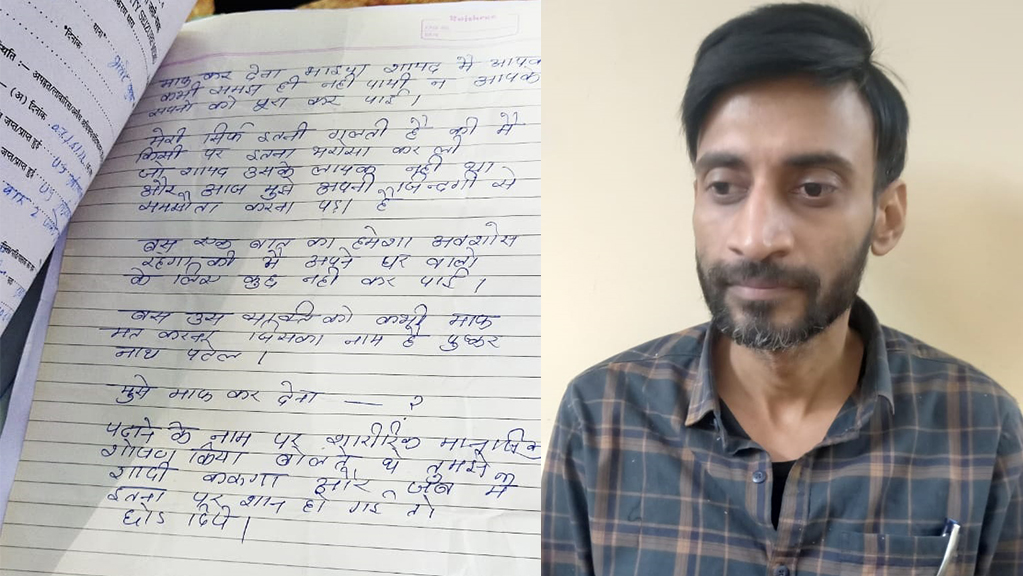 नाम
दिनांक
(अ) दिनांक
माफ कर देना भाइया शायद मै
कभी समझ ही नही पायी न आपके
सपनो को पूरा कर पाई ।
मेरी सिर्फ इतनी गलती है की मै
किसी पर इतना भरोसा कर ली
जो शायद उसके लायक नही था
और आज मुझे अपनी जिन्दगी से
समझौता करना पडा है
बस एक बात का हमेशा अफशोस
रहेगा की मै अपने घर वालो
के लिए कुछ नही कर पाई ।
बस उस व्यक्ति को कभी माफ
मत करना जिसका नाम है पुष्कर
नाथ पटेल ।
मुझे माफ कर देना — २
पढाने के नाम पर शारीरिक
शोषण किया बोलते थे तुमसे
शादी करुगा और जब मै
इतना परेशान हो गई तो
छोड दिये।